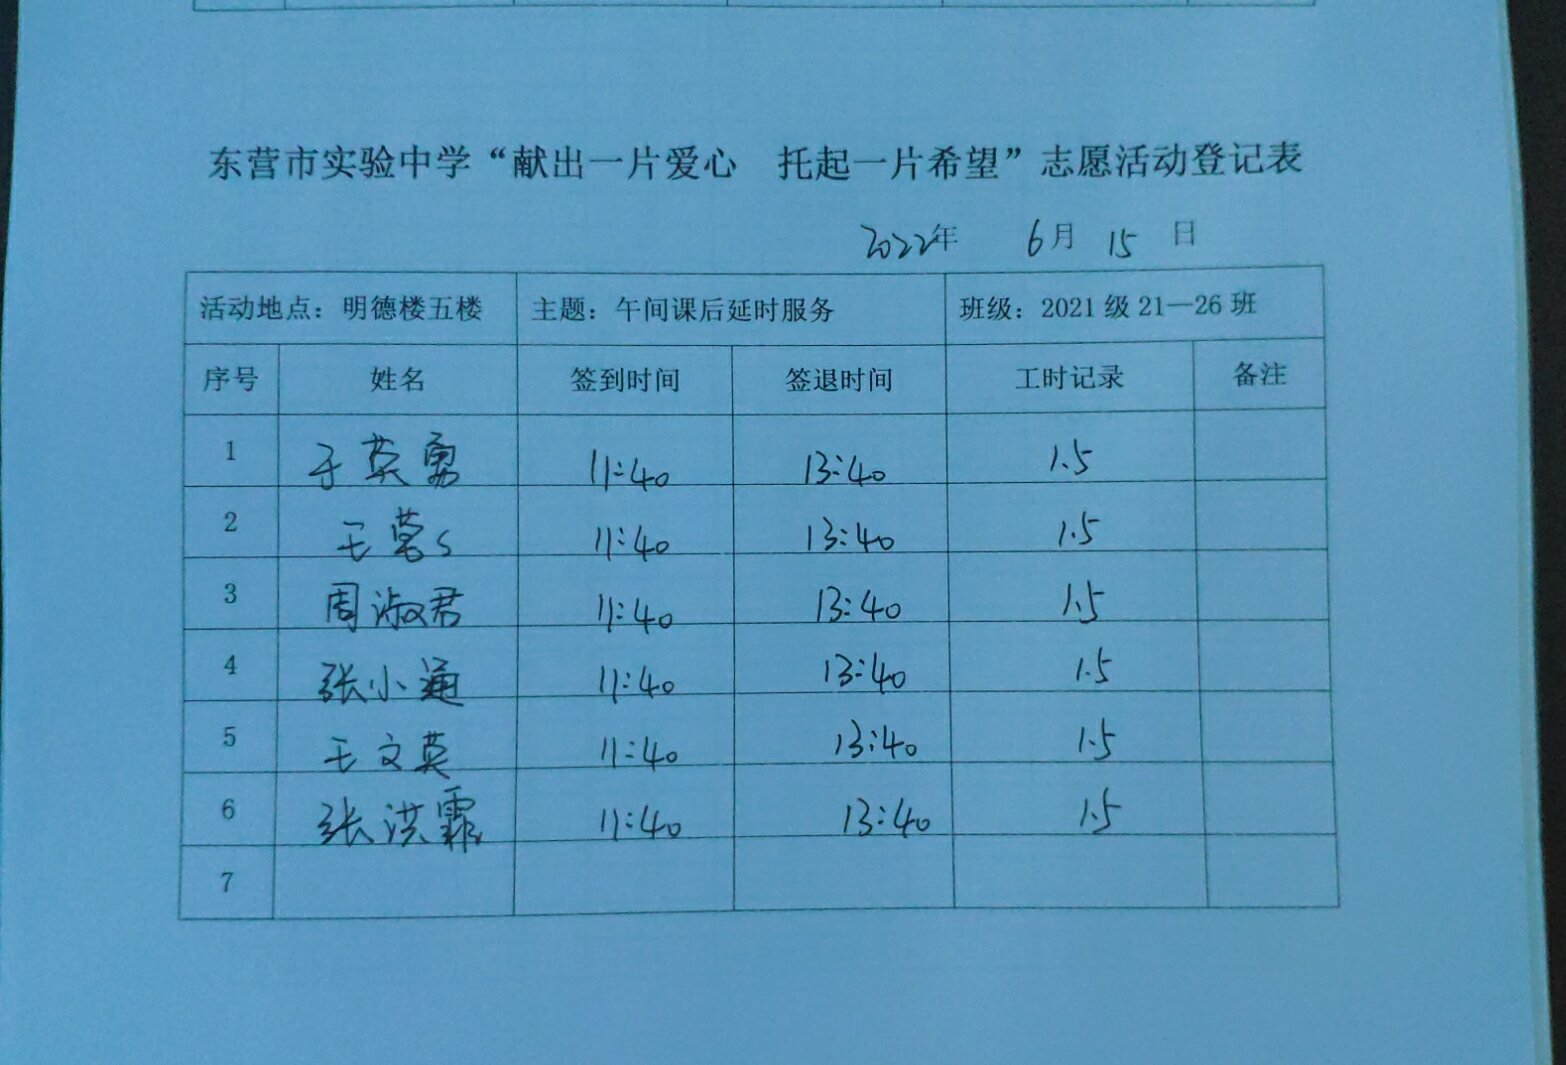 东营市实验中学“献出一片爱心 托起一片希望”志愿活动登记表
2022年 6月 15 日
活动地点：明德楼五楼 主题：午间课后延时服务 班级：2021级21—26班
序号 姓名 签到时间 签退时间 工时记录 备注
1 于英勇 11:40 13:40 1.5
2 王 11:40 13:40 1.5
3 周淑君 11:40 13:40 1.5
4 张小通 11:40 13:40 1.5
5 王文英 11:40 13:40 1.5
6 张洪霏 11:40 13:40 1.5
7